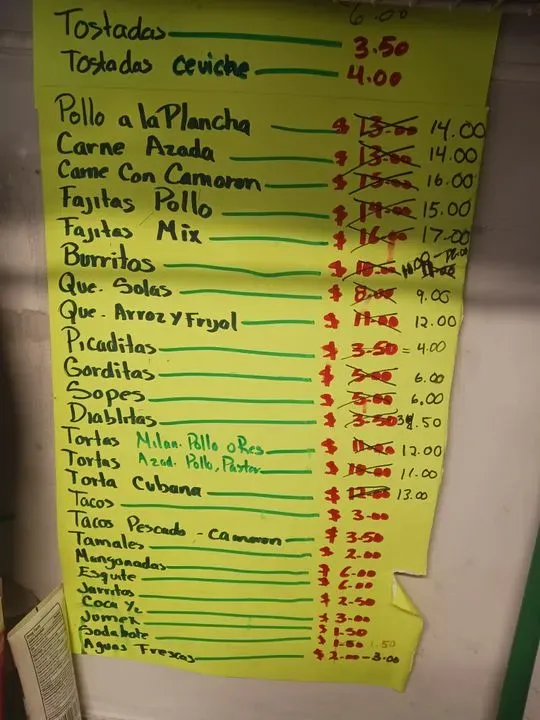 6.00
Tostadas 3.50
Tostadas ceviche 4.00
Pollo a la Plancha $ 13.00 14.00
Carne Azada $ 13.00 14.00
Carne Con Camaron $ 15.00 16.00
Fajitas Pollo $ 14.00 15.00
Fajitas Mix $ 16.00 17.00
Burritos $ 10.00
Que. Solas $ 8.00 9.00
Que. Arroz y Frijol $ 11.00 12.00
Picaditas $ 3.50 = 4.00
Gorditas $ 5.00 6.00
Sopes $ 5.00 6.00
Diablitas $ 3.50
Tortas Milan. Pollo o Res $ 11.00 12.00
Tortas Azad. Pollo, Pastor $ 10.00 11.00
Torta Cubana $ 12.00 13.00
Tacos $ 3.00
Tacos Pescado - Camaron $ 3.50
Tamales $ 2.00
Mangonadas $ 6.00
Esquite $ 6.00
Jarritos $ 2.50
Coca ½ $ 3.00
Jumex $ 1.50
Sodabote $ 1.50
Aguas Frescas $ 2.00 - 3.00